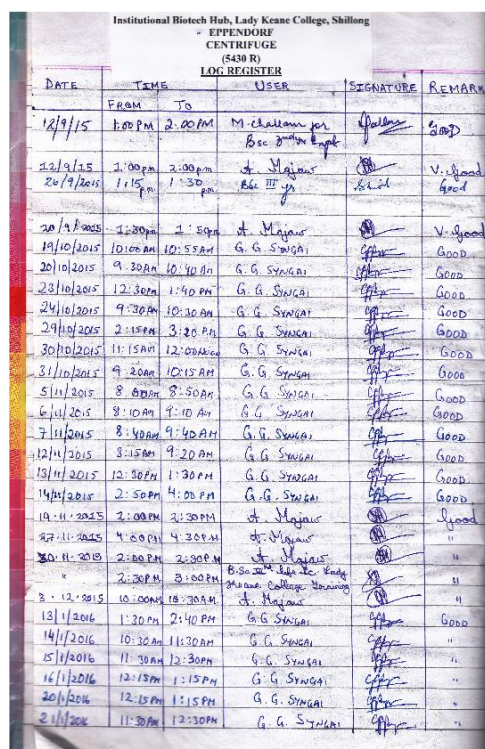 Institutional Biotech Hub, Lady Keane College, Shillong
EPPENDORF
CENTRIFUGE
(5430 R)
LOG REGISTER
DATE TIME USER SIGNATURE REMARK
FROM TO
12/9/15 1:00 PM 2:00 PM M. Challam for Good
Bsc 2nd yr
12/9/15 1:00 pm 2:00 pm A. Majaw V. Good
26/9/2015 1:15 pm 1:30 pm Bsc III yr Good
1:30pm 1:50pm A. Majaw V. Good
19/10/2015 10:00 AM 10:55 AM G. G. SYNGAI GOOD
20/10/2015 9.30 AM 10:40 AM G. G. SYNGAI GOOD
23/10/2015 12:30 PM 1:40 PM G. G. SYNGAI GOOD
24/10/2015 9:30 AM 10:30 AM G. G. SYNGAI GOOD
29/10/2015 2:15 PM 3:20 P.M G. G. SYNGAI GOOD
30/10/2015 11:15 AM 12:00 Noon G. G. SYNGAI GOOD
31/10/2015 9:20 AM 10:15 AM G. G. SYNGAI GOOD
5/11/2015 8:00 AM 8:50 AM G. G. SYNGAI GOOD
6/11/2015 8:10 AM 9:10 AM G. G. SYNGAI GOOD
7/11/2015 8:40 AM 9:40 AM G. G. SYNGAI GOOD
12/11/2015 8:15 AM 9:20 AM G. G. SYNGAI GOOD
13/11/2015 12:30 PM 1:30 PM G. G. SYNGAI GOOD
14/11/2015 2:50 PM 4:00 PM G. G. SYNGAI GOOD
19.11.2015 2:00 PM 2:30 PM A. Majaw Good
27.11.2015 4:00 PM 4:30 P.M A. Majaw "
30.11.2015 2:00 PM 2:30 P.M A. Majaw "
" 2:30 P.M 3:00 P.M B.Sc Lady "
Keane College Training
3.12.2015 10:00 AM 10:30 A.M. A. Majaw "
13/1/2016 1:30 PM 2:40 PM G. G. SYNGAI GOOD
14/1/2016 10:30 AM 11:30 AM G. G. SYNGAI "
15/1/2016 11:30 AM 12:30 PM G. G. SYNGAI "
16/1/2016 12:15 PM 1:15 PM G. G. SYNGAI "
20/1/2016 12:15 PM 1:15 PM G. G. SYNGAI "
21/1/2016 11:30 AM 12:30 PM G. G. SYNGAI "